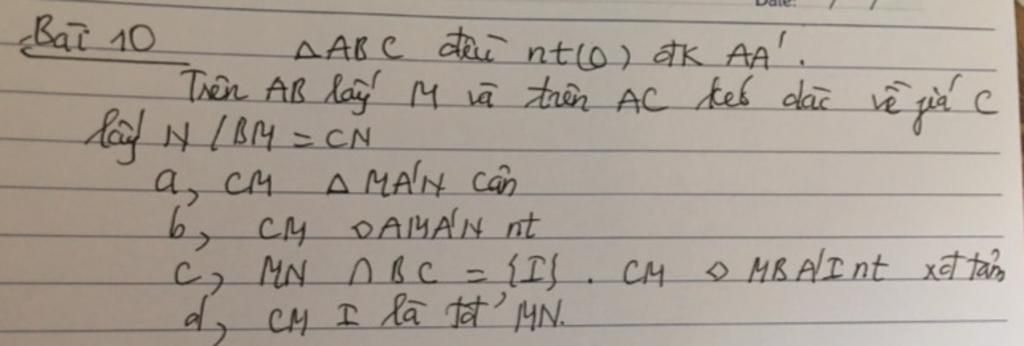 Bài 10 ΔABC đều nt(O) đK AA'.
Trên AB lấy M và trên AC kéo dài về phía C
lấy N / BM = CN
a, CM ΔMA'N cân
b, CM ◇AMA'N nt
c, MN ∩ BC = {I}. CM ◇ MBA'I nt xđ tâm
d, CM I là tđ' MN.